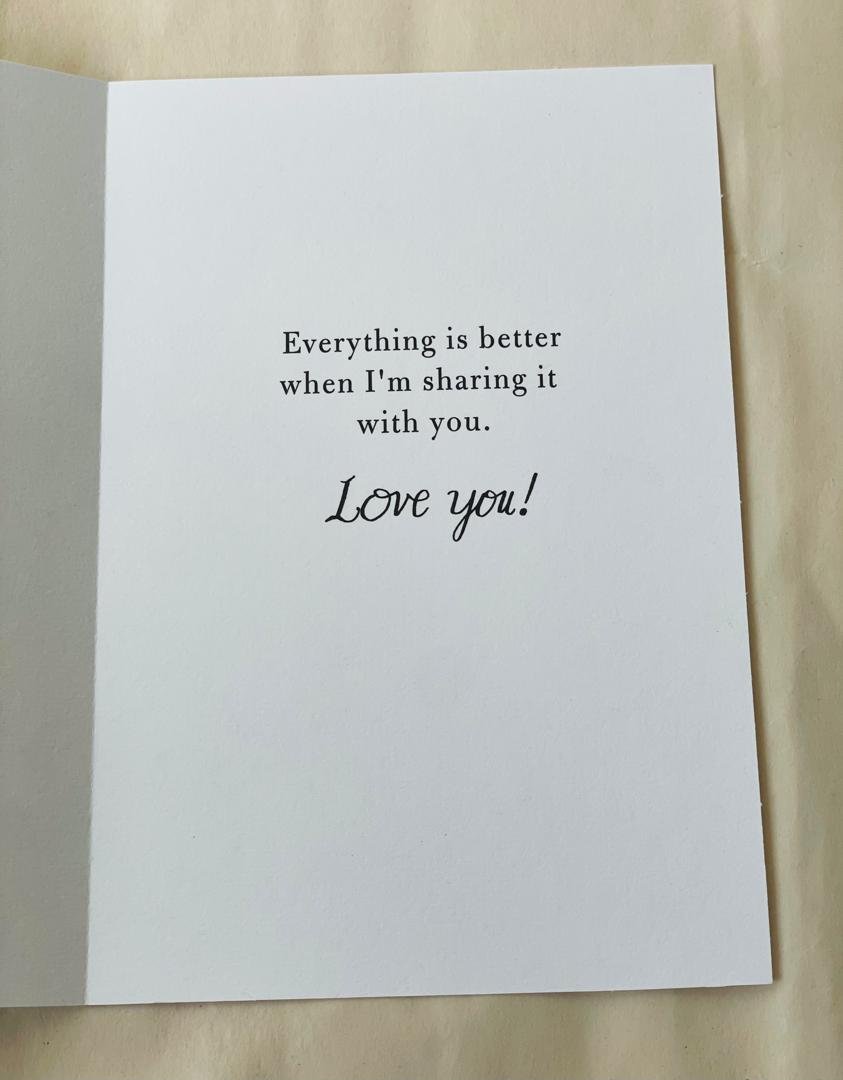 Everything is better
when I'm sharing it
with you.
Love you!